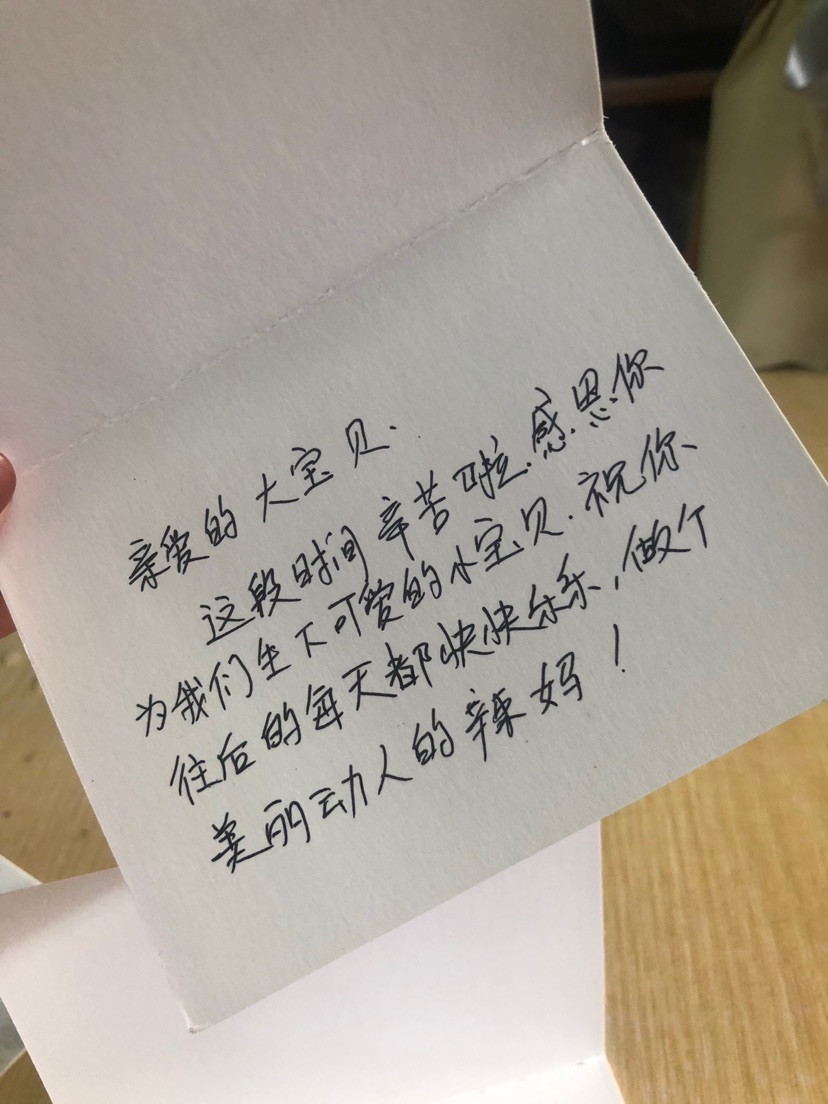 亲爱的大宝贝.
这段时间辛苦啦.感恩你
为我们生下可爱的小宝贝.祝你
往后的每天都快快乐乐,做个
美丽动人的辣妈!